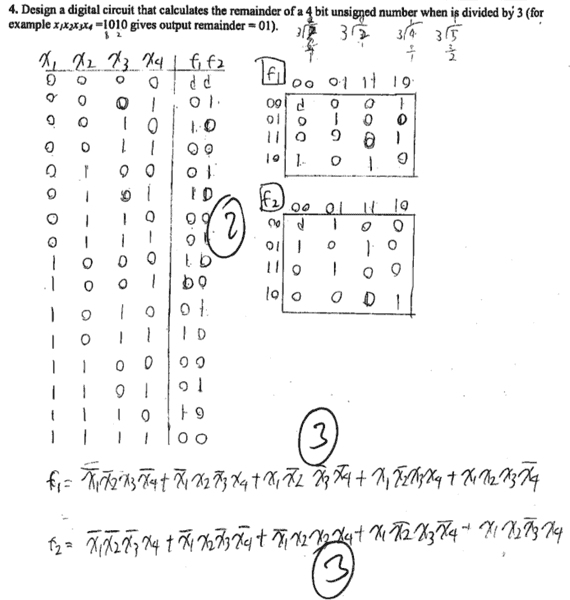 4. Design a digital circuit that calculates the remainder of a 4 bit unsigned number when is divided by 3 (for
example x₁x₂x₃x₄ =1010 gives output remainder = 01).
x₁ x₂ x₃ x₄ f₁ f₂
0 0 0 0 d d
0 0 0 1 0 1
0 0 1 0 1 0
0 0 1 1 0 0
0 1 0 0 0 1
0 1 0 1 1 0
0 1 1 0 0 0
0 1 1 1 0 1
1 0 0 0 1 0
1 0 0 1 0 0
1 0 1 0 0 1
1 0 1 1 1 0
1 1 0 0 0 0
1 1 0 1 0 1
1 1 1 0 1 0
1 1 1 1 0 0
2
f₁ 00 01 11 10
00 d 0 0 1
01 0 1 0 0
11 0 0 0 1
10 1 0 1 0
f₂ 00 01 11 10
00 d 1 0 0
01 1 0 1 0
11 0 1 0 0
10 0 0 0 1
3
f₁ = x̅₁x̅₂x₃x̅₄ + x̅₁x₂x̅₃x₄ + x₁x̅₂x̅₃x̅₄ + x₁x̅₂x₃x₄ + x₁x₂x₃x̅₄
f₂ = x̅₁x̅₂x̅₃x₄ + x̅₁x₂x̅₃x̅₄ + x̅₁x₂x₃x₄ + x₁x̅₂x₃x̅₄ + x₁x₂x̅₃x₄
3